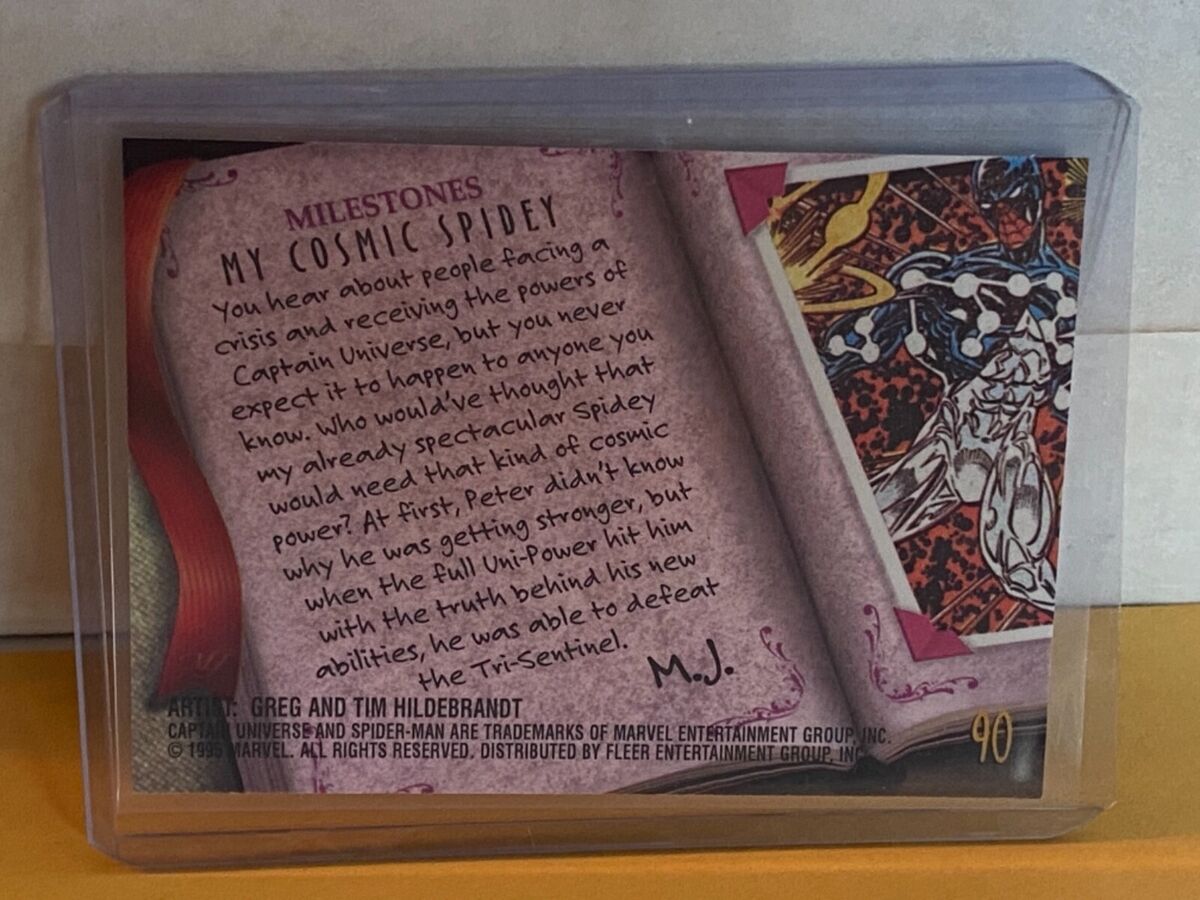 MILESTONES
MY COSMIC SPIDEY
You hear about people facing a
crisis and receiving the powers of
Captain Universe, but you never
expect it to happen to anyone you
know. Who would've thought that
my already spectacular Spidey
would need that kind of cosmic
power? At first, Peter didn't know
why he was getting stronger, but
when the full Uni-Power hit him
with the truth behind his new
abilities, he was able to defeat
the Tri-Sentinel.
M.J.
ARTIST: GREG AND TIM HILDEBRANDT
CAPTAIN UNIVERSE AND SPIDER-MAN ARE TRADEMARKS OF MARVEL ENTERTAINMENT GROUP, INC.
© 1995 MARVEL. ALL RIGHTS RESERVED. DISTRIBUTED BY FLEER ENTERTAINMENT GROUP, INC
90